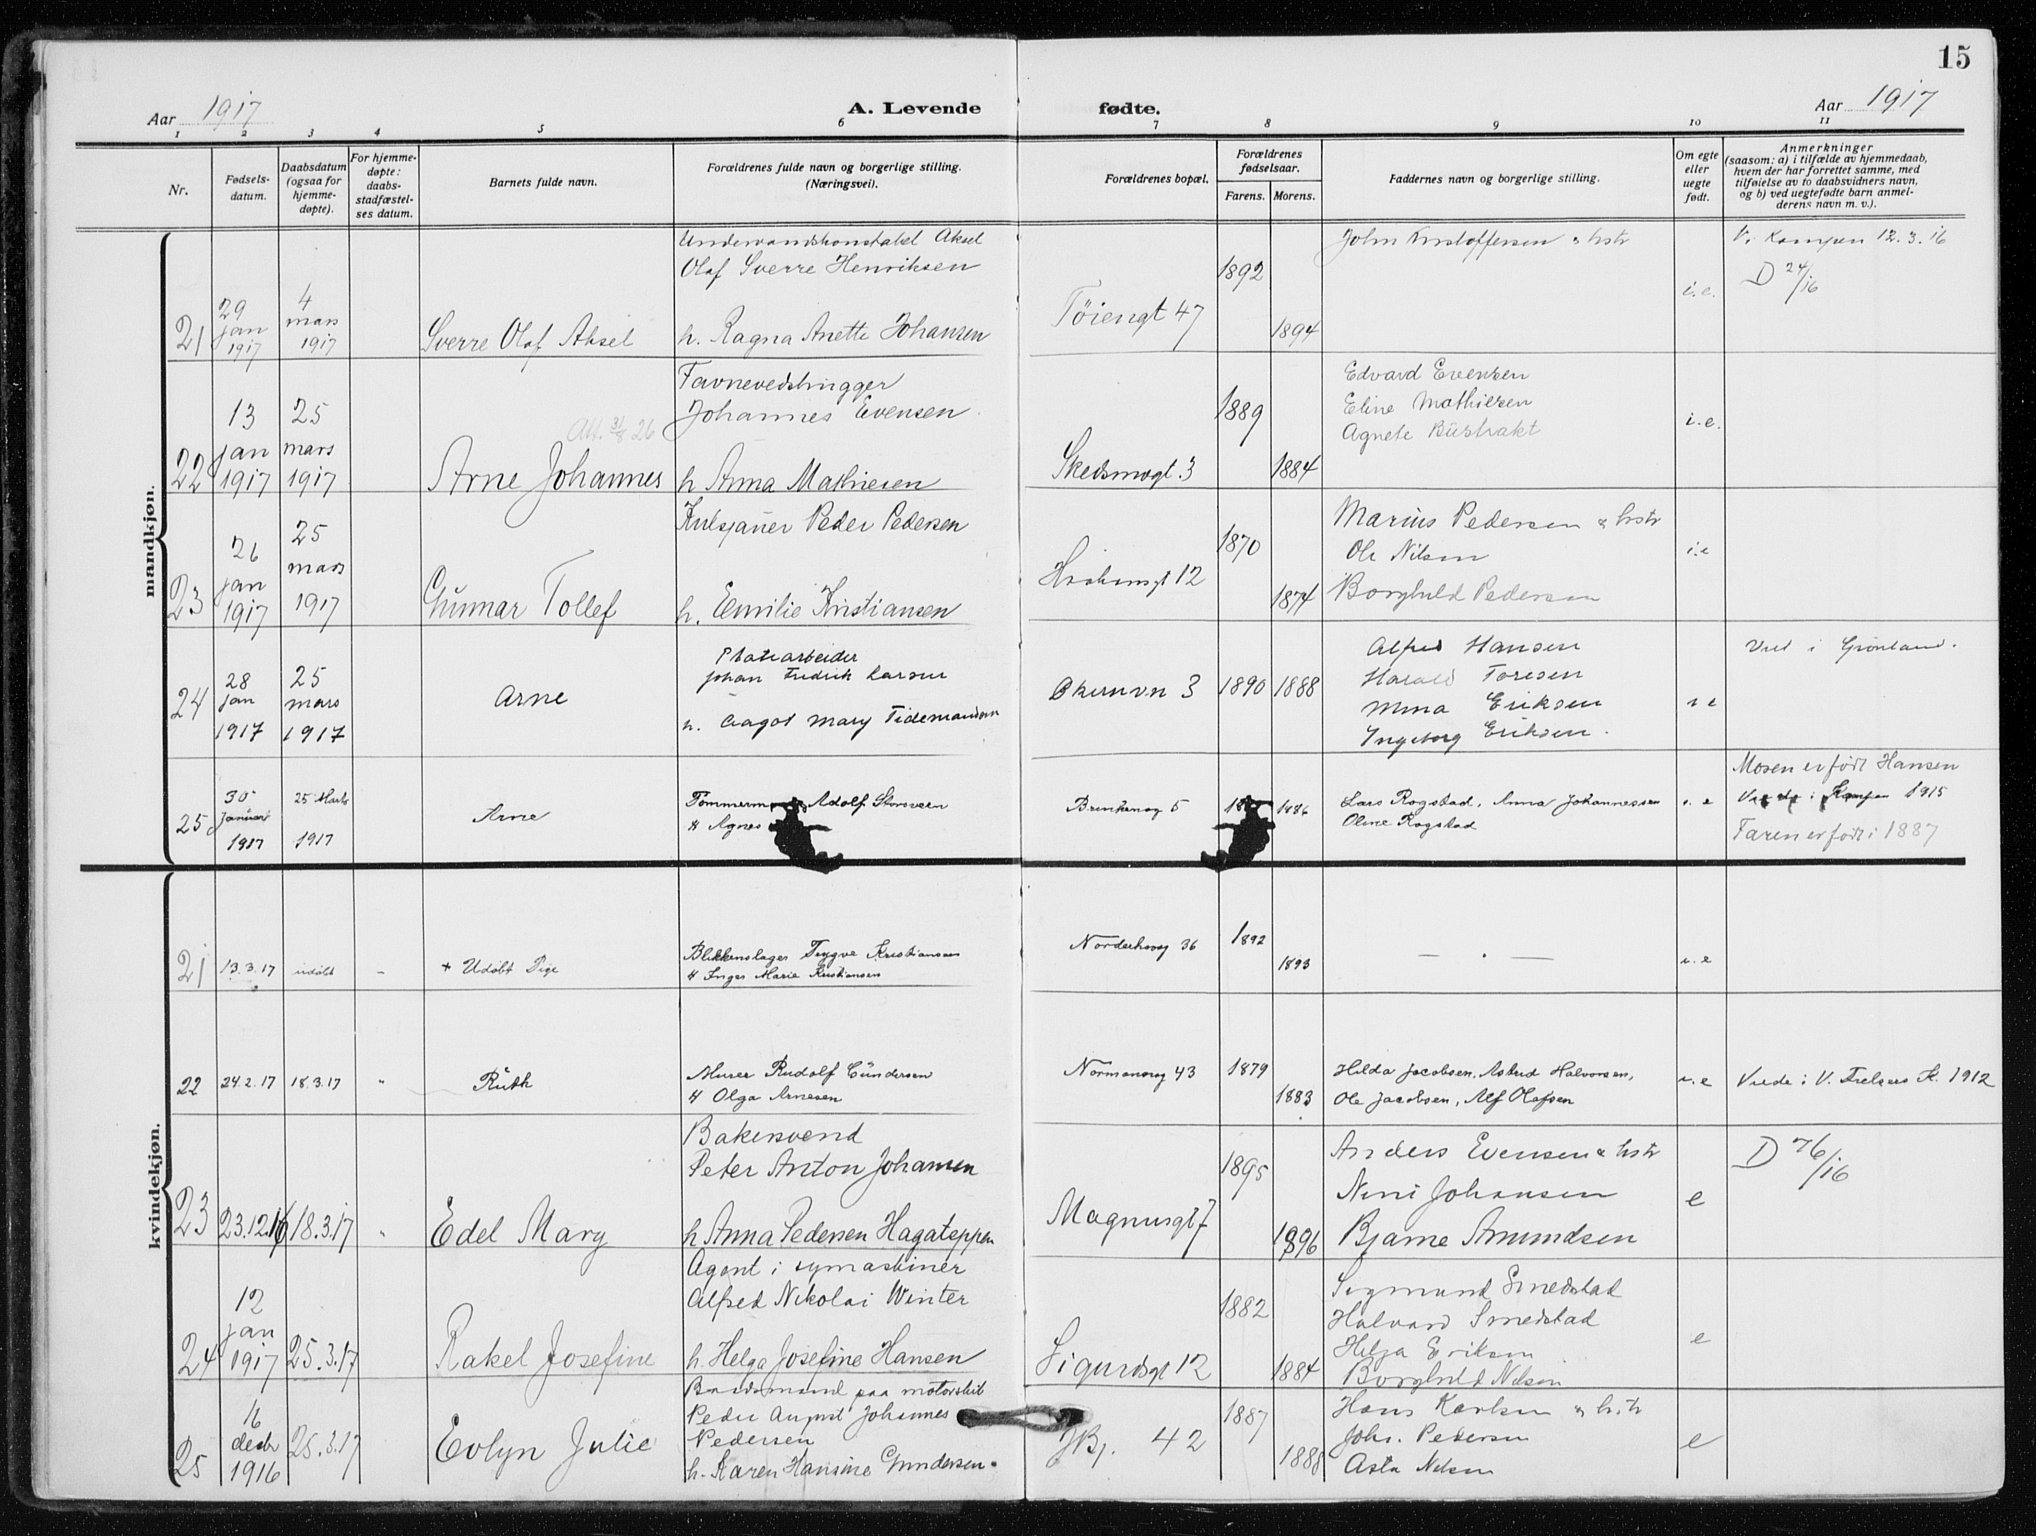 15
Aar 1917
A. Levende fødte.
Aar 1917
1 2 3 4 5 6 7 8 9 10 11
Nr.
Fødsels-
datum.
Daabsdatum
(ogsaa for
hjemme-
døpte).
For hjemme-
døpte:
daabs-
stadfæstel-
ses datum.
Barnets fulde navn.
Forældrenes fulde navn og borgerlige stilling.
(Næringsvei).
Forældrenes bopæl.
Forældrenes
fødselsaar.
Farens. Morens.
Faddernes navn og borgerlige stilling.
Om egte
eller
uegte
født.
Anmerkninger
(saasom: a) i tilfælde av hjemmedaab,
hvem der har forrettet samme, med
tilføielse av to daabsvidners navn,
og b) ved uegtefødte barn anmel-
derens navn m. v.).
mandkjøn.
21
29
jan
1917
4
mars
1917
Sverre Olaf Aksel
Aksel
Olaf Sverre Henriksen
h. Ragna Anette Johansen
Tøiengt 47
1892
1894
John Kristoffersen & hstr
i.e.
V. i Kampen 12.3.16
D 24/16
22
13
jan
1917
25
mars
1917
Att. 31/8 26
Arne Johannes
Favnevedhugger
Johannes Evensen
h Anna Mathiesen
Skedsmogt. 3
1889
1884
Edvard Evensen
Eline Mathiesen
Agnete
i.e.
23
26
jan
1917
25
mars
1917
Gunnar Tollef
Kulsjauer Peder Pedersen
h. Emilie Kristiansen
12
1870
1874
Marius Pedersen & hstr
Ole Nilsen
Borghild Pedersen
i.e
24
28
jan
1917
25
mars
1917
Arne
Platearbeider
Johan Fredrik Larsen
h. Aagot Mary Tidemandsen
Økernvn 3
1890 1888
Alfred Hansen
Harald Toresen
Mina Eriksen
Ingeborg Eriksen.
i e
Viet i Grønland.
25
30
Januar
1917
25 Marts
1917
Arne
Adolf
H Agnes
5
1886
Lars Rogstad, Anna Johannessen
Oline Rogstad
i. e
Moren er født Hansen
Viede i Kampen 1915
Faren er født i 1887
kvindekjøn.
21
13.3.17
udøbt
–
+ Udøbt Pige
Blikkenslager Trygve Kristiansen
H Inger Marie Kristiansen
Norderhovg 36
1892
1893
— . —
u. e
22
24.2.17
18.3.17
"
Ruth
Murer Rudolf Gundersen
H Olga Arnesen
Normannsg 43
1879
1883
Hilda Jacobsen, Astrid Halvorsen,
Ole Jacobsen, Alf Olafsen
u. e
Viede i V. Frelsers K. 1912
23
23.12.16
18.3.17
"
Edel Mary
Bakersvend
Peter Anton Johansen
h Anna Pedersen Hagateppen
Magnusgt 7
1895
1896
Anders Evensen & hstr
Nini Johansen
Bjarne Amundsen
e
D 76/16
24
12
jan
1917
25.3.17
Rakel Josefine
Agent i symaskiner
Alfred Nikolai Winter
h. Helga Josefine Hansen
Sigurdsgt 12
1882
1884
Sigmund Smedstad
Halvard Smedstad
Helga Eriksen
Borghild Nilsen
e
25
16
decbr
1916
25.3.17
Evlyn Julie
paa motorskib
Peder August Johannes
Pedersen
h. Karen Hansine Gundersen.
42
1887
1888
Hans Karlsen & hstr
Johs. Pedersen
Asta Nilsen
e